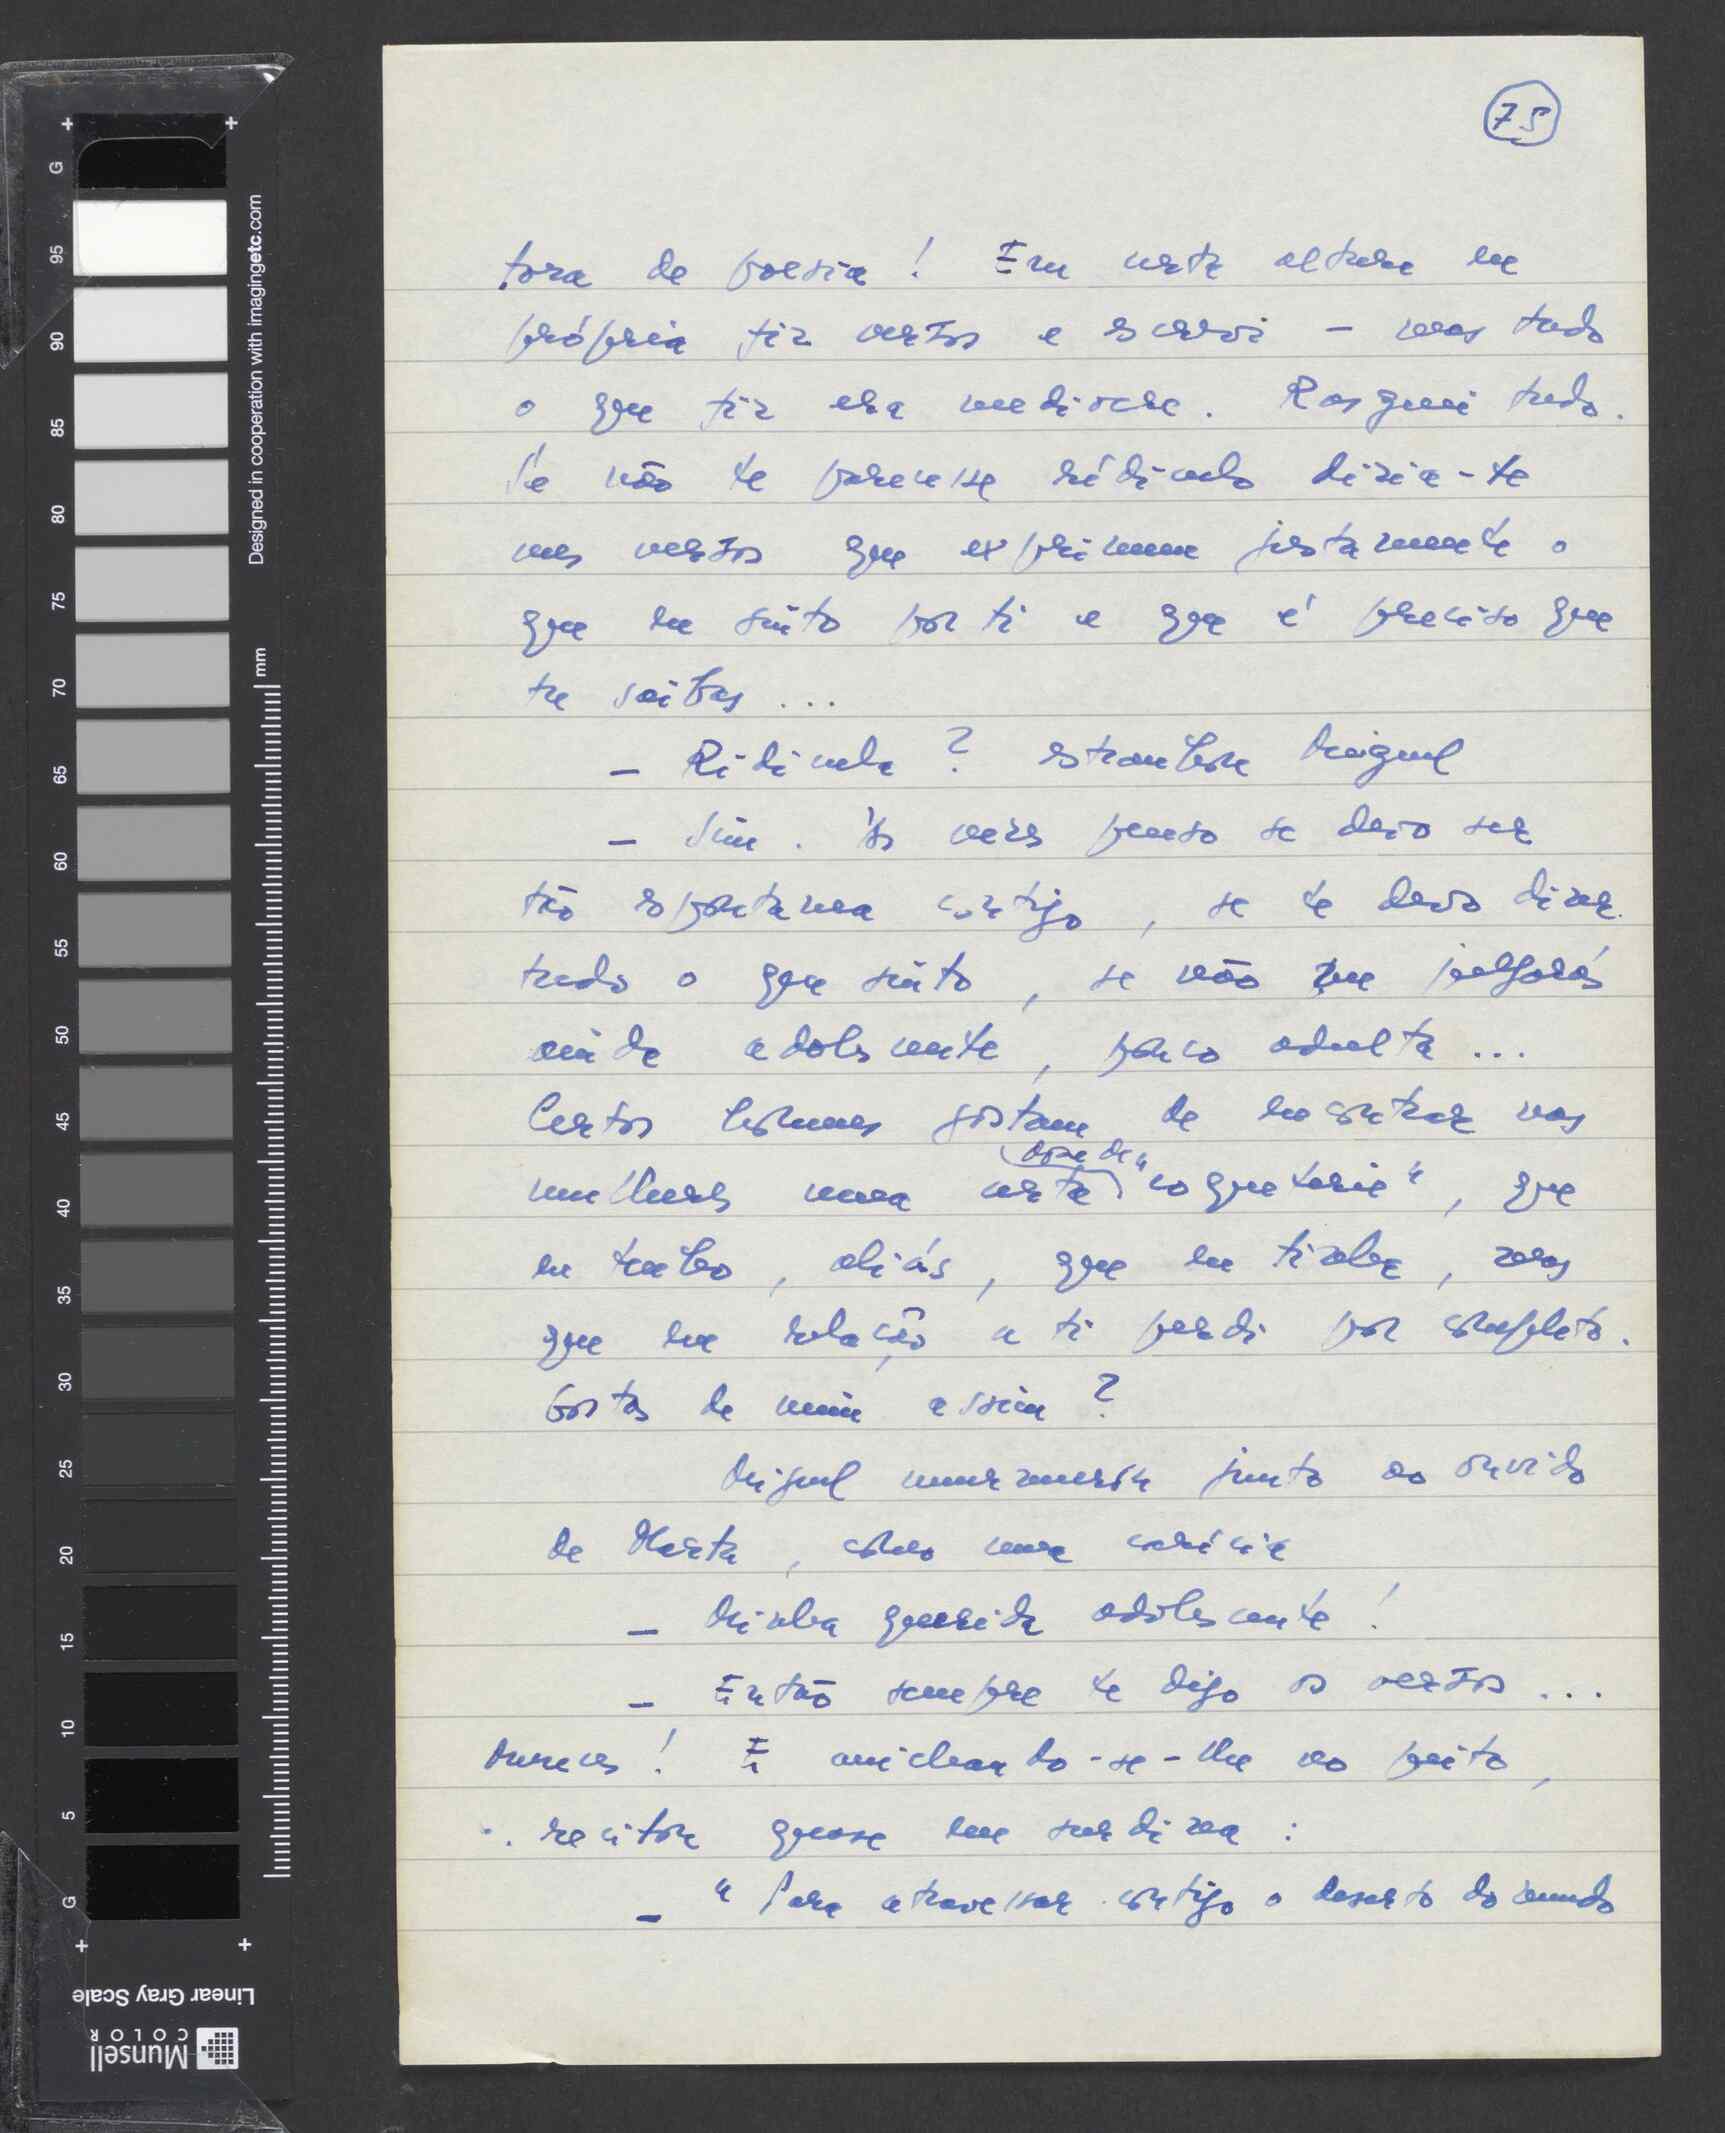 75
tora de poesia! Em certa altura eu
própria fiz versos e escrevi - mas tudo
o que fiz era mediocre. Rasguei tudo.
Se não te parecesse rídiculo diria-te
uns versos que exprimem justamente o
que eu sinto por ti e que é preciso que
tu saibas...
- Ridicula? estranhou Miguel
- Sim. Ás vezes penso se devo ser
tão espontanea contigo, se te devo dizer
tudo o que sinto, se não me julgarás
ainda adolescente, pouco adulta...
Certos homens gostam de encontrar nas
dose de
mulheres uma certa "coqueterie", que
eu tenho, aliás, que eu tinha, mas
que em relação a ti perdi por completo.
Gostas de mim assim?
Miguel murmurou junto ao ouvido
de Marta, como uma carícia
- Minha querida adolescente!
- Então sempre te digo os versos...
Mereces! E aninhando-se-lhe no peito,
recitou quase em surdina:
- "Para atravessar contigo o deserto do mundo
Designed in cooperation with imagingetc.com
mm
G
95
90
85
80
75
70
65
60
55
50
45
40
35
30
25
20
15
10
5
G
Linear Gray Scale
Munsell
COLOR